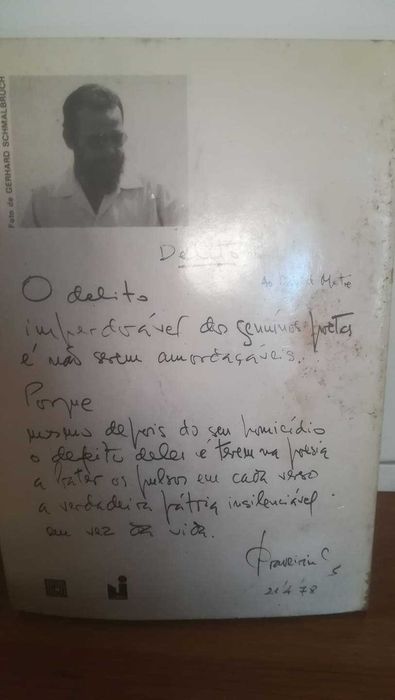 Foto de GERHARD SCHMALBRUCH
Delito
O delito
imperdoável dos genuínos poetas
é não serem amordaçáveis.
Porque
mesmo depois do seu homicídio
o defeito deles é terem na poesia
a bater os pulsos em cada verso
a verdadeira pátria insilenciável
em vez da vida.
Craveirinha
21 4 78